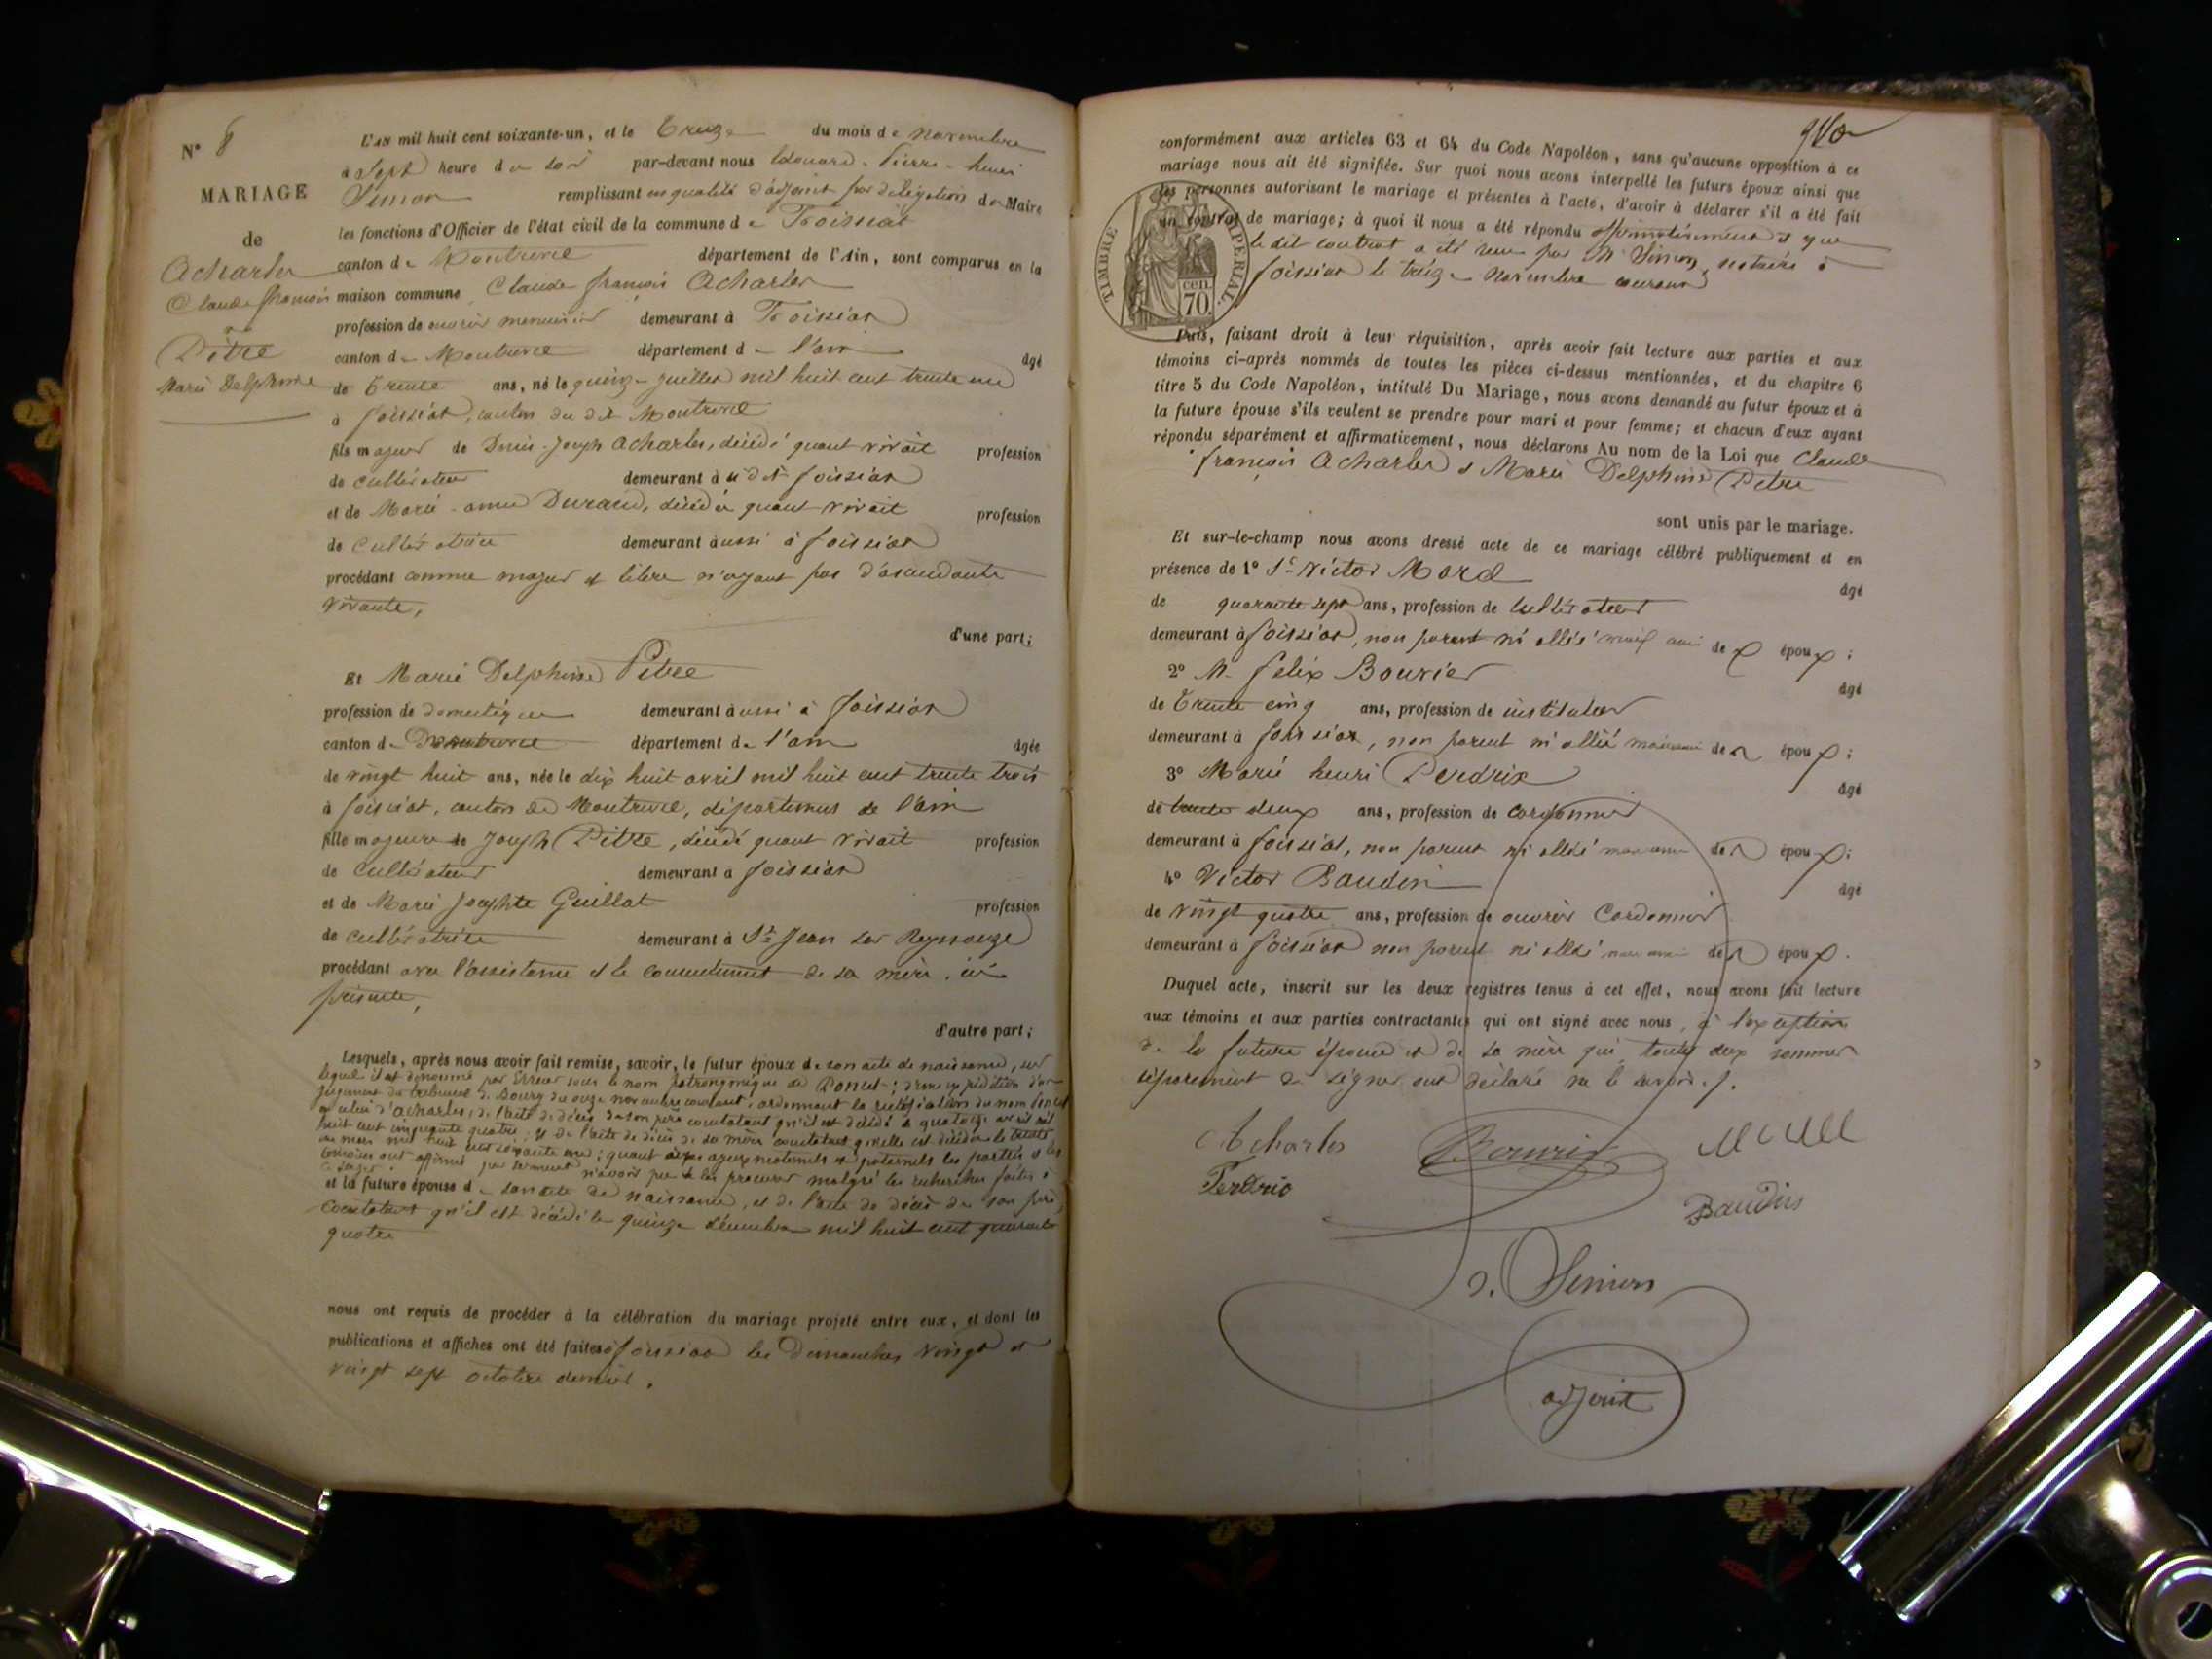 N° 8
MARIAGE
de
Acharles
Claude françois
Pitre
Marie Delphine
L'AN mil huit cent soixante-un, et le treize du mois de novembre
à sept heure du soir par-devant nous Edouard-Pierre-henri
Simon remplissant en qualité d'adjoint par délégation du Maire
les fonctions d'Officier de l'état civil de la commune de Foissiat
canton de Montrevel département de l'Ain, sont comparus en la
maison commune Claude françois Acharles
profession de ouvrier menuisier demeurant à Foissiat
canton de Montrevel département de l'ain âgé
de trente ans, né le quinze juillet mil huit cent trente un
à foissiat, canton du dit Montrevel
fils majeur de Denis-Joseph Acharles, décédé quant vivait profession
de cultivateur demeurant à u dit foissiat
et de Marie-anne Durand, décédée quant vivait profession
de cultivatrice demeurant aussi à foissiat
procédant comme majeur et libre n'ayant pas d'ascendants
vivants,
d'une part;
Et Marie Delphine Pitre
profession de domestique demeurant aussi à foissiat
canton de Montrevel département de l'ain âgée
de vingt huit ans, née le dix huit avril mil huit cent trente trois
à foissiat, canton de Montrevel, département de l'ain
fille majeure de Joseph Pitre, décédé quant vivait profession
de cultivateur demeurant à foissiat
et de Marie Josephte Guillot profession
de cultivatrice demeurant à St Jean sur Reyssouze
procédant avec l'assistance et le consentement de sa mère, ici
présente,
d'autre part;
Lesquels, après nous avoir fait remise, savoir, le futur époux de son acte de naissance, sur
lequel il est dénommé par Erreur sous le nom patronymique de Poncet; d'une expédition d'un
jugement du tribunal de Bourg du onze novembre courant, ordonnant la rectification du nom Poncet
en celui d'acharles, de l'acte de décès de son père constatant qu'il est décédé le quatorze avril mil
huit cent cinquante quatre; et de l'acte de décès de sa mère constatant qu'elle est décédée le trente
un mars mil huit cent soixante un; quant aux ayeux maternels et paternels les parties et les
témoins ont affirmé par serment n'avoir pu se les procurer malgré les recherches faites à
ce sujet.
et la future épouse de son acte de naissance, et de l'acte de décès de son père,
constatant qu'il est décédé le quinze décembre mil huit cent quarante
quatre
nous ont requis de procéder à la célébration du mariage projeté entre eux, et dont les
publications et affiches ont été faites à foissiat les dimanches vingt et
vingt sept octobre dernier.
conformément aux articles 63 et 64 du Code Napoléon, sans qu'aucune opposition à ce
mariage nous ait été signifiée. Sur quoi nous avons interpellé les futurs époux ainsi que
les personnes autorisant le mariage et présentes à l'acte, d'avoir à déclarer s'il a été fait
un contrat de mariage; à quoi il nous a été répondu affirmativement et que
le dit contrat a été reçu par Me Simon, notaire à
foissiat le treize novembre courant
TIMBRE IMPERIAL.
cen.
70.
Puis, faisant droit à leur réquisition, après avoir fait lecture aux parties et aux
témoins ci-après nommés de toutes les pièces ci-dessus mentionnées, et du chapitre 6
titre 5 du Code Napoléon, intitulé Du Mariage, nous avons demandé au futur époux et à
la future épouse s'ils veulent se prendre pour mari et pour femme; et chacun d'eux ayant
répondu séparément et affirmativement, nous déclarons Au nom de la Loi que Claude
françois Acharles et Marie Delphine Pitre
sont unis par le mariage.
Et sur-le-champ nous avons dressé acte de ce mariage célébré publiquement et en
présence de 1° Sr Victor Morel âgé
de quarante sept ans, profession de cultivateur
demeurant à foissiat, non parent ni allié mais ami de x époux;
2° M. felix Bouvier âgé
de trente cinq ans, profession de instituteur
demeurant à foissiat, non parent ni allié mais ami des époux;
3° Marie henri Perdrix âgé
de trente deux ans, profession de cordonnier
demeurant à foissiat, non parent ni allié mais ami des époux;
4° Victor Baudin âgé
de vingt quatre ans, profession de ouvrier Cordonnier
demeurant à foissiat non parent ni allié mais ami des époux.
Duquel acte, inscrit sur les deux registres tenus à cet effet, nous avons fait lecture
aux témoins et aux parties contractantes qui ont signé avec nous, à l'exception
de la future épouse et de sa mère qui toutes deux sommées
séparément de signer ont déclaré ne le savoir.
Acharles Bouvier
Perdrix Baudin
Simon
adjoint